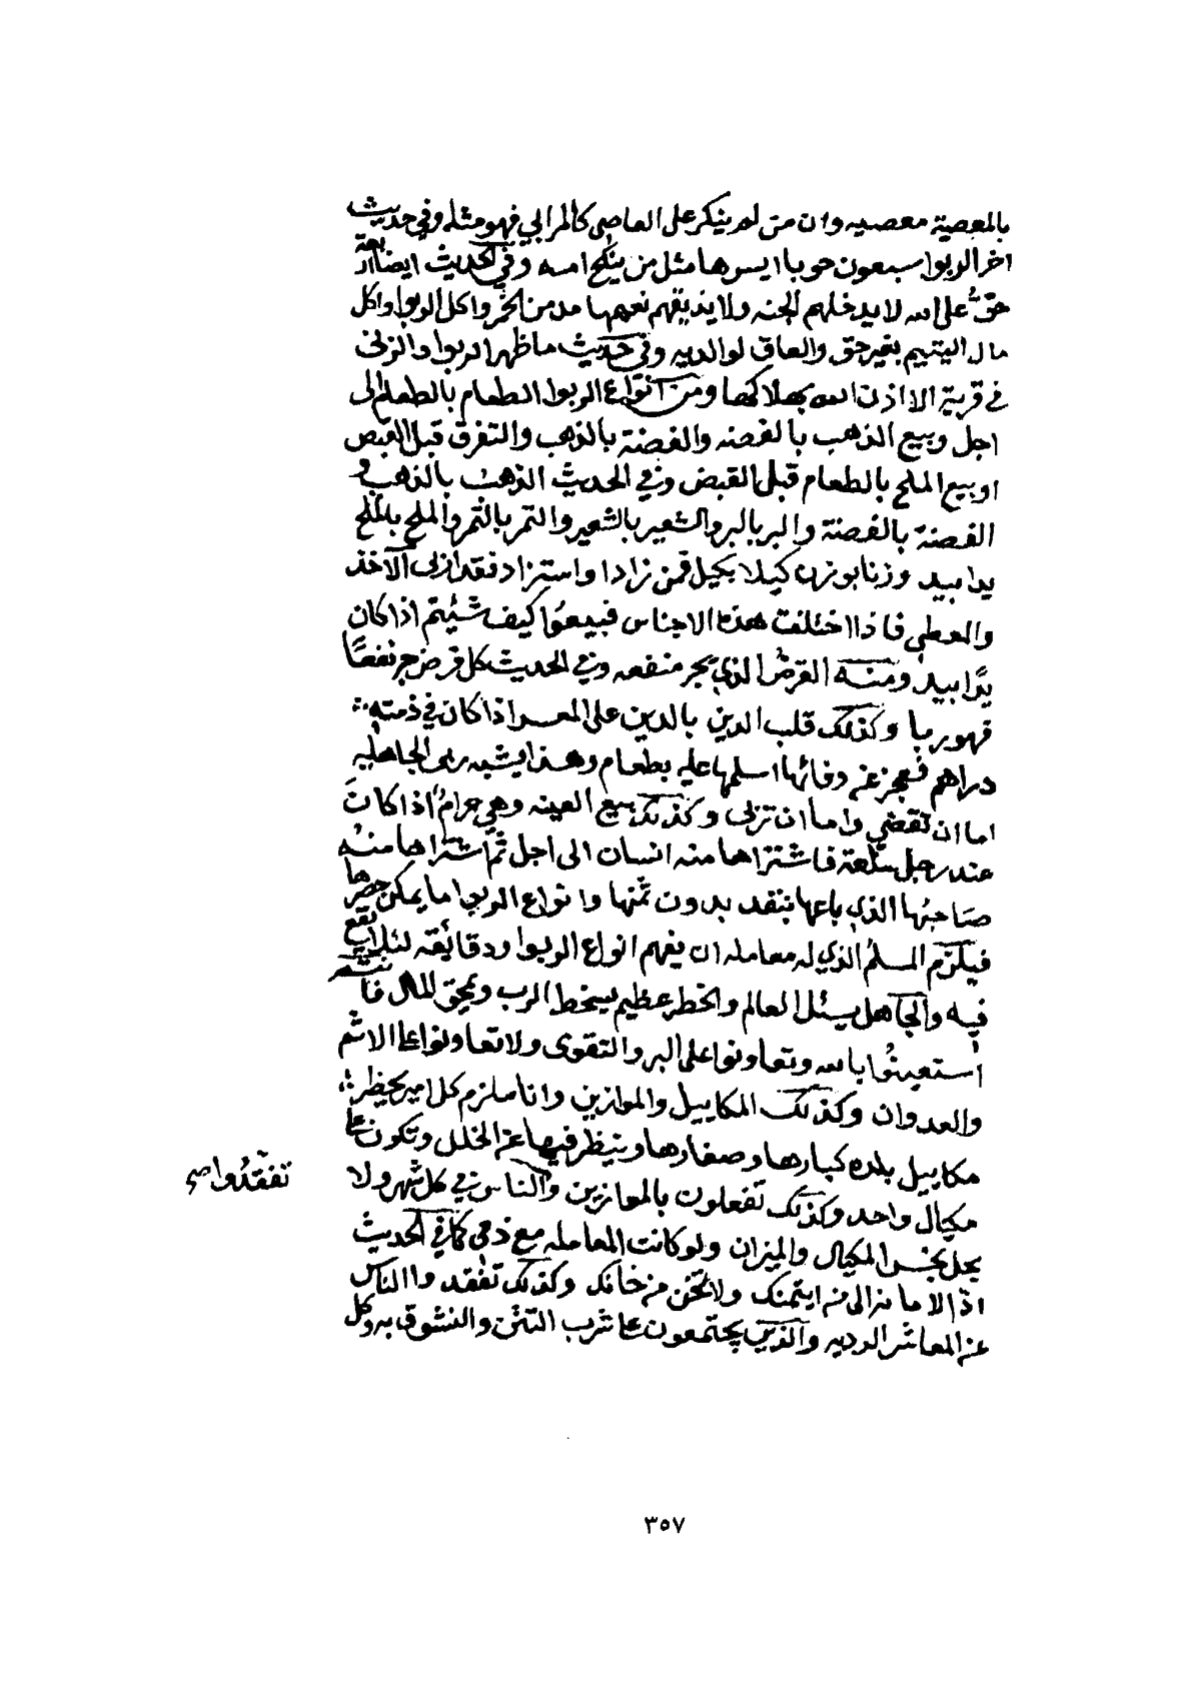 بالمعصية معصيه وان من لم ينكر على العاصي كالمرابي فهو مثله وفي حديث
اخر الربوا سبعون حوبا ايسرها مثل من ينكح امه وفي الحديث ايضا اربعة
حقٌ على الله لا يدخلهم الجنه ولا يذيقهم نعيمها مدمن الخمر واكل الربوا واكل
مال اليتيم بغير حق والعاق لوالديه وفي حديث ما ظهر الربوا والزنى
في قرية الا اذن الله بهلاكها ومن انواع الربوا الطعام بالطعام الى
اجل وبيع الذهب بالفضه والفضة بالذهب والتفرق قبل القبض
او بيع الملح بالطعام قبل القبض وفي الحديث الذهب بالذهب و
الفضة بالفضة والبر بالبر والشعير بالشعير والتمر بالتمر والملح بالملح
يدا بيد وزنا بوزن كيلا بكيل فمن زاد او استزاد فقد اربى الآخذ
والمعطي فاذا اختلفت هذه الاجناس فبيعوا كيف شئتم اذا كان
يدًا بيد ومنه القرض الذي يجر منفعه وفي الحديث كل قرض جر نفعًا
فهو ربا وكذلك قلب الدين بالدين على المعسر اذا كان في ذمته
دراهم فعجز عن وفائها اسلمها عليه بطعام وهذا يشبه ربى الجاهليه
اما ان تقضي واما ان تربى وكذلك بيع العينه وهي حرام اذا كانت
عند رجل سلعة فاشتراها منه انسان الى اجل ثم اشتراها منه
صاحبها الذي باعها بنقد بدون ثمنها وانواع الربوا ما يمكن حصرها
فيلزم المسلم الذي له معامله ان يفهم انواع الربوا ودقائقه لئلا يقع
فيه والجاهل يسئل العالم والخطر عظيم يسخط الرب ويمحق المال فانتم
استعينوا بالله وتعاونوا على البر والتقوى ولا تعاونوا على الاثم
والعدوان وكذلك المكاييل والموازين وانا ملزم كل امير يحضر
مكاييل بلده كبارها وصغارها وينظر فيها عن الخلل وتكون على
مكيال واحد وكذلك تفعلون بالموازين والناس في كل شهر ولا
تفقدوا صح
يحل بخس المكيال والميزان ولو كانت المعامله مع ذمي كما في الحديث
اد الامانه الى من ايتمنك ولا تخن من خانك وكذلك تفقدوا الناس
عن المعاشر الرديه والذين يجتمعون على شرب التتن والنشوق به وكل
٣٥٧